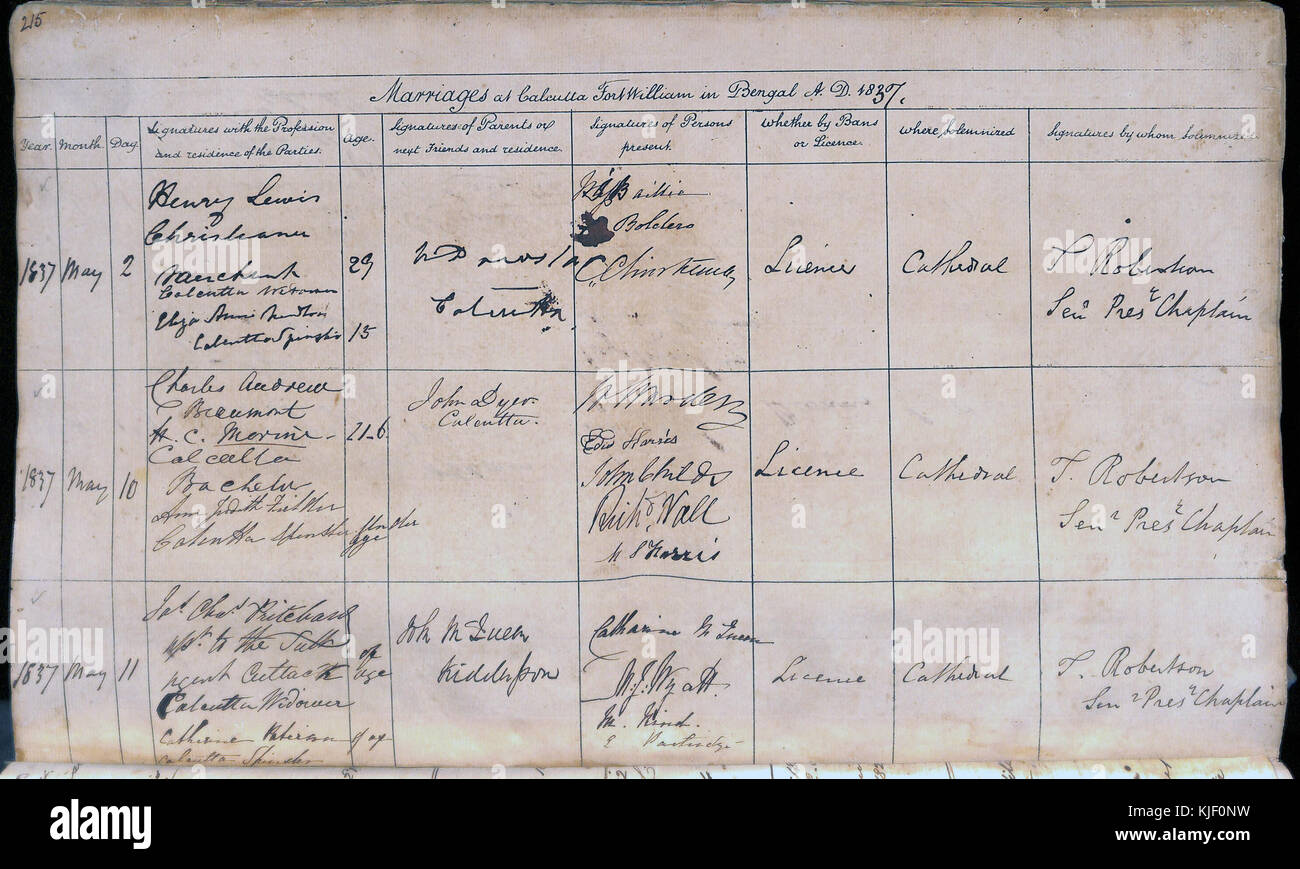 215
Marriages at Calcutta Fort William in Bengal A. D. 1837.
Year.
Month.
Day.
Signatures with the Profession
and residence of the Parties.
Age.
Signatures of Parents or
next Friends and residence.
Signatures of Persons
present.
Whether by Bans
or Licence.
where Solemnized
Signatures by whom Solemnized
1837
May
2
Henry Lewis
Christiana
Merchant
Calcutta Widower
Eliza Anne
Calcutta Spinster
29
15
Calcutta
Baillie
Licence
Cathedral
T. Robertson
Senr Presy Chaplain
1837
May
10
Charles Andrew
Beaumont
H. C. Marine
Calcutta
Bachelor
Ann Judith
Calcutta Spinster
21-6
under
age
John Dyer
Calcutta.
Edwd Harris
John Childs
Richd Wall
Harris
Licence
Cathedral
T. Robertson
Senr Presy Chaplain
1837
May
11
Jas. Chas. Pritchard
Asst. to the Salt
agent Cuttack
Calcutta Widower
Catherine
Calcutta Spinster
of
age
of age
John McQueen
Kidderpore
Catharine McQueen
Wyatt
E Partridge
Licence
Cathedral
T. Robertson
Senr Presy Chaplain
alamy
Image ID: KJF0NW
www.alamy.com